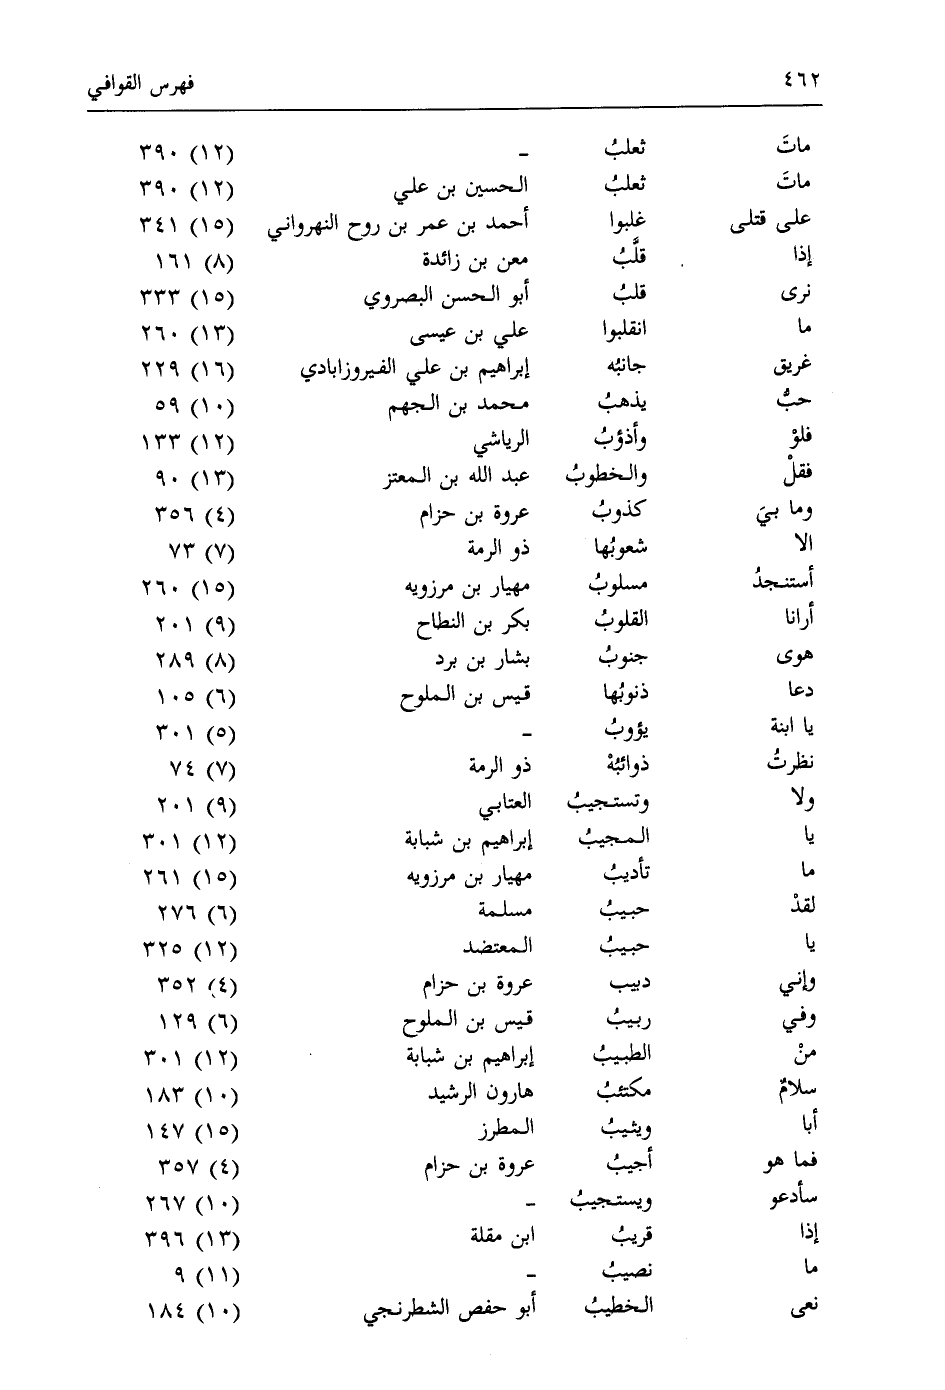 ٤٦٢ فهرس القوافي
ماتَ ثعلبُ – (١٢) ٣٩٠
ماتَ ثعلبُ الحسين بن علي (١٢) ٣٩٠
على قتلى غلبوا أحمد بن عمر بن روح النهرواني (١٥) ٣٤١
إذا قلَّبُ معن بن زائدة (٨) ١٦١
نرى قلبُ أبو الحسن البصروي (١٥) ٣٣٣
ما انقلبوا علي بن عيسى (١٣) ٢٦٠
غريق جانبُه إبراهيم بن علي الفيروزابادي (١٦) ٢٢٩
حبُّ يذهبُ محمد بن الجهم (١٠) ٥٩
فلوْ وأذؤبُ الرياشي (١٢) ١٣٣
فقلْ والخطوبُ عبد الله بن المعتز (١٣) ٩٠
وما بيَ كذوبُ عروة بن حزام (٤) ٣٥٦
الا شعوبُها ذو الرمة (٧) ٧٣
أستنجدُ مسلوبُ مهيار بن مرزويه (١٥) ٢٦٠
أرانا القلوبُ بكر بن النطاح (٩) ٢٠١
هوى جنوبُ بشار بن برد (٨) ٢٨٩
دعا ذنوبُها قيس بن الملوح (٦) ١٠٥
يا ابنة يؤوبُ – (٥) ٣٠١
نظرتُ ذوائبُهْ ذو الرمة (٧) ٧٤
ولا وتستجيبُ العتابي (٩) ٢٠١
يا المجيبُ إبراهيم بن شبابة (١٢) ٣٠١
ما تأديبُ مهيار بن مرزويه (١٥) ٢٦١
لقدْ حبيبُ مسلمة (٦) ٢٧٦
يا حبيبُ المعتضد (١٢) ٣٢٥
وإني دبيب عروة بن حزام (٤) ٣٥٢
وفي ربيبُ قيس بن الملوح (٦) ١٢٩
منْ الطبيبُ إبراهيم بن شبابة (١٢) ٣٠١
سلامٌ مكتئبُ هارون الرشيد (١٠) ١٨٣
أبا ويثيبُ المطرز (١٥) ١٤٧
فما هو أجيبُ عروة بن حزام (٤) ٣٥٧
سأدعو ويستجيبُ – (١٠) ٢٦٧
إذا قريبُ ابن مقلة (١٣) ٣٩٦
ما نصيبُ – (١١) ٩
نعى الخطيبُ أبو حفص الشطرنجي (١٠) ١٨٤